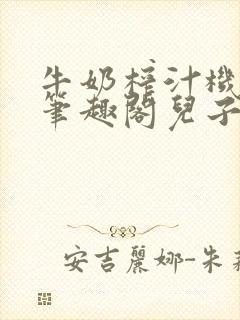 牛奶榨汁機
筆趣閣兒子
安吉麗娜-朱